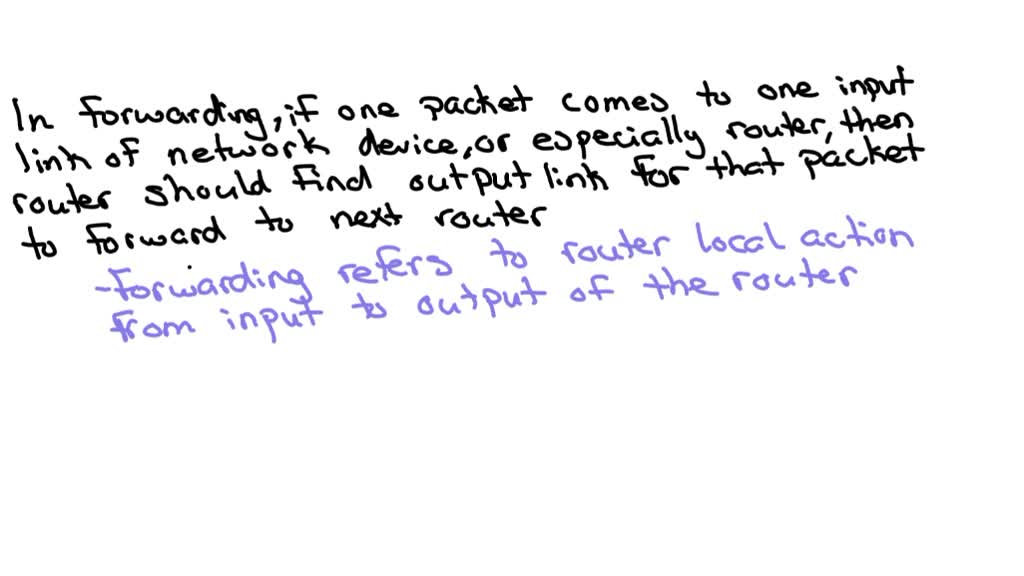 In forwarding, if one packet comes to one input
link of network device, or especially router, then
router should find output link for that packet
to forward to next router
-Forwarding refers to router local action
from input to output of the router